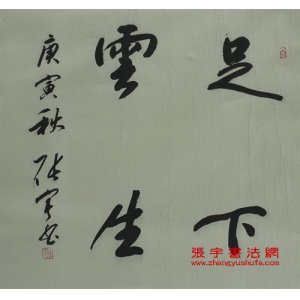 足下
雲生
庚寅秋張宇書
張宇書法網
www.zhangyushufa.com